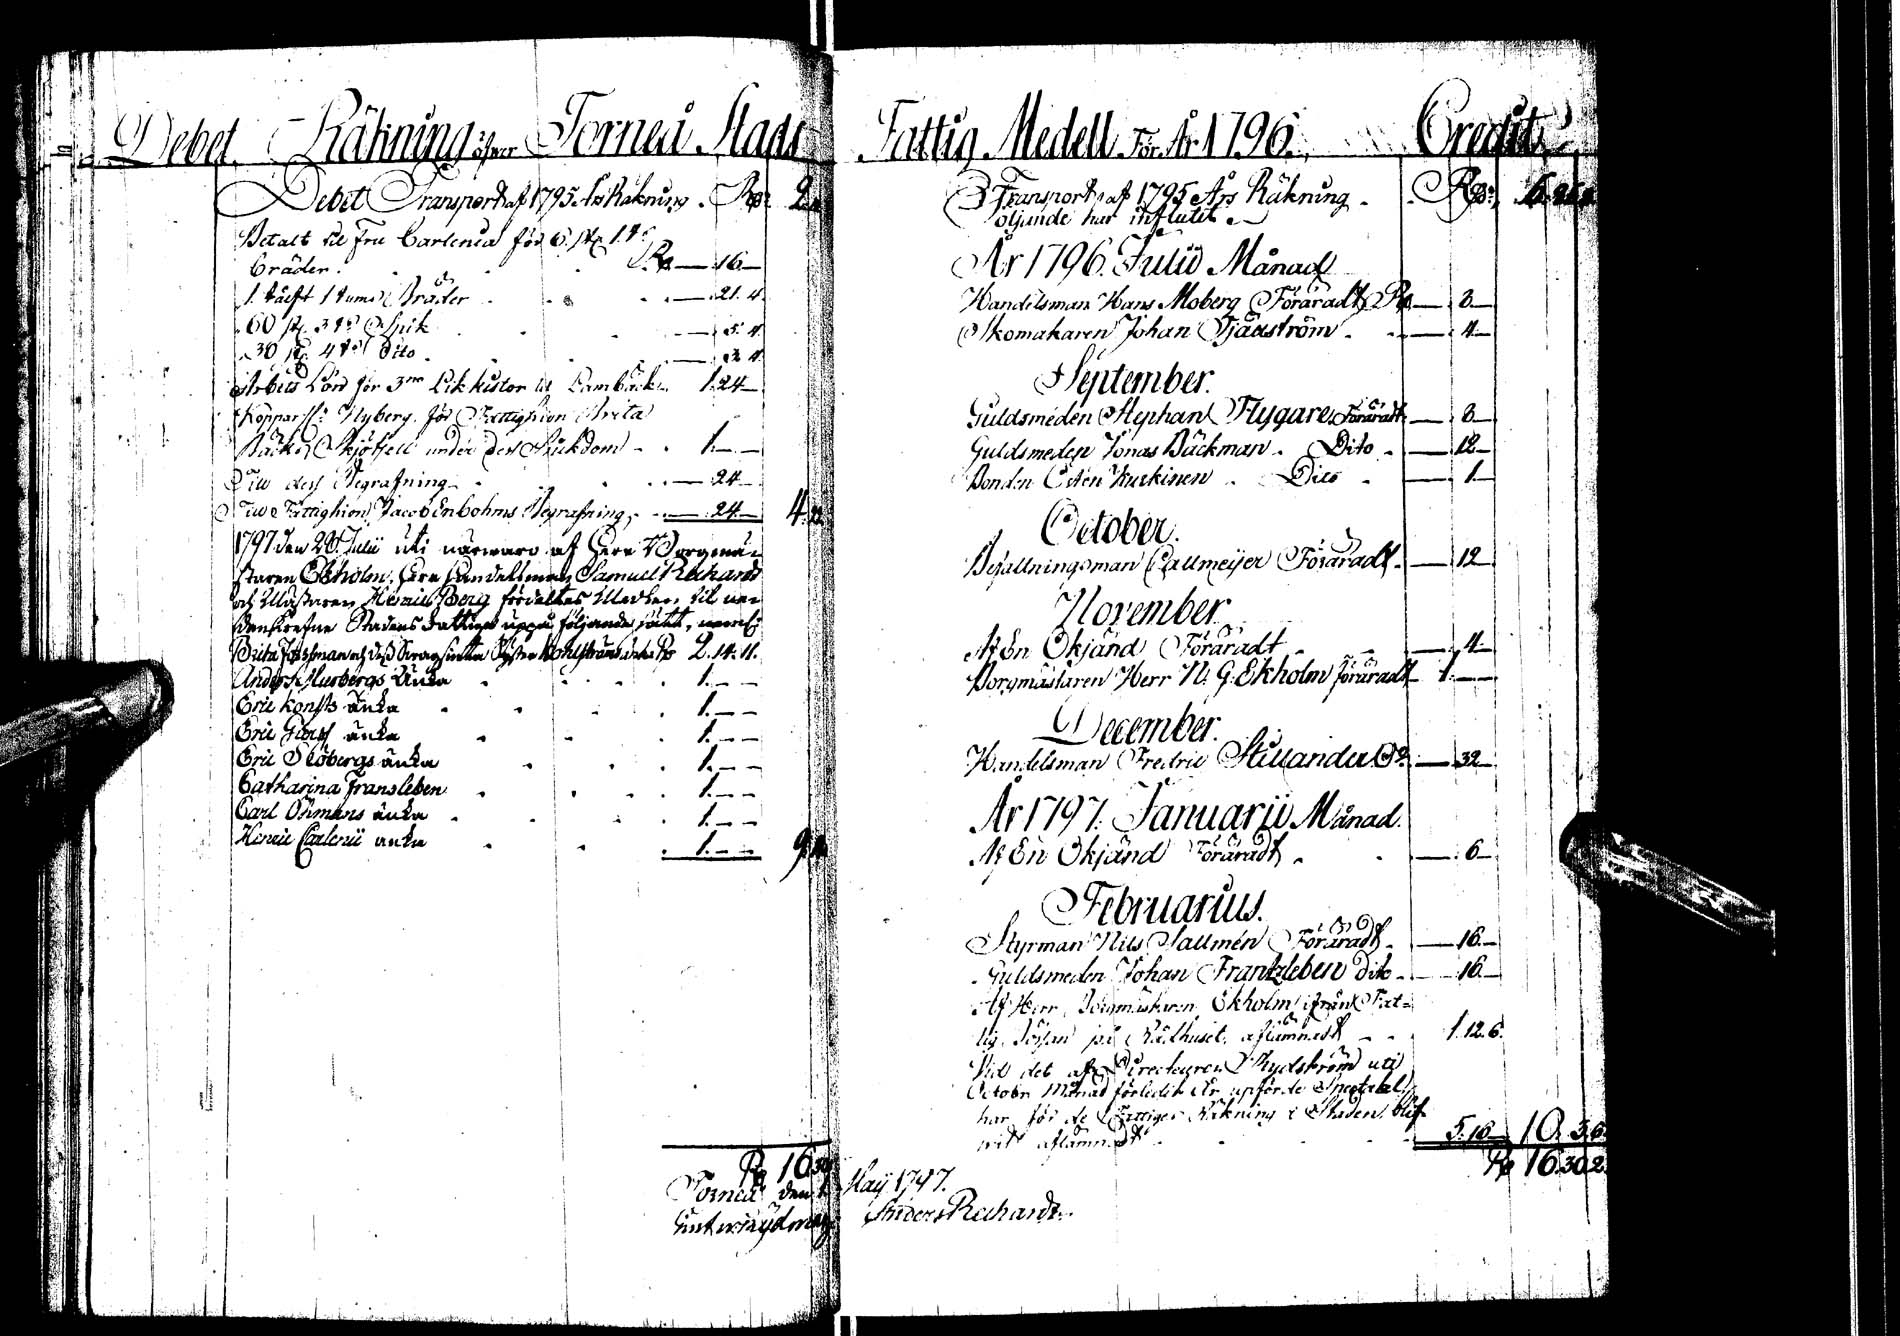 Debet. Räkning öfwer Torneå Stads
Debet Transport af 1795 Års Räkning. Rdr 2.
Betalt til Fru Carlenia för 6. st. 1. t
Bräder. R — 16 —
1. tålft 1 tums Bräder — 21. 4.
60 st. 3 t Spik — 5. 4.
30 st. 4 t Dito — 4.
Arbets Lön för 3ne Likkistor til Lambäck 1. 24 —
Koppar Nyberg. för Fattighion Brita
Skjötsell under des Siukdom 1. — —
des Begrafning — 24 —
Fattighion Jacob Enbohms Begrafning — 24 — 4. 22
1797 den 28. Julii uti närwaro af Herr Borgmä-
staren Ekholm, Herr Handelsman Samuel Rechardt
och Mästaren Henric Berg fördeltes Medlen til ne-
danskrefne Stadens Fattige uppå följande sätt,
Brita Forssman och des Syster R 2. 14. 11.
Anders Murbergs Änka 1. — —
Eric Konsts änka 1. — —
Eric änka 1. — —
Eric Sköbergs änka 1. — —
Catharina Fransleben 1. — —
Carl Öhmans änka 1. — —
Henric Carlenii änka 1. — — 9.
R 16. 30
Torneå den
Fattig Medell För År 1796. Credit.
Transport af 1795 Års Räkning. Rdr 6. 26.
följande har influtit.
År 1796. Julii Månad
Handelsman Hans Moberg Föräradt R — 8 —
Skomakaren Johan Tjäderström — 4 —
September.
Guldsmeden Stephan Flygare Föräradt — 8 —
Guldsmeden Jonas Bäckman. Dito — 12 —
Bonden Kuckinen Dito — 1 —
October.
Befallningsman Callmeijer Föräradt — 12
November.
Af En Okjänd Föräradt — 4 —
Borgmästaren Herr N. G. Ekholm föräradt 1. — —
December.
Handelsman Fredric Stillander — 32 —
År 1797. Januarii Månad.
Af En Okjänd Föräradt — 6 —
Februarius.
Styrman Nils Sallmén Föräradt — 16 —
Guldsmeden Johan Frantzleben dito — 16 —
Af Herr Borgmästaren Ekholm ifrån Fat-
tig Bössan på Rådhuset aflämnadt 1. 12. 6.
Vid det af Directeuren Rydström uti
October Månad förledit År upförde Spectakel,
har för de Fattiges Räkning i Staden blif-
wit aflämnadt 5. 16 — 10. 3. 6.
R 16. 30. 2.
Maij 1797.
Anders Rechardt.